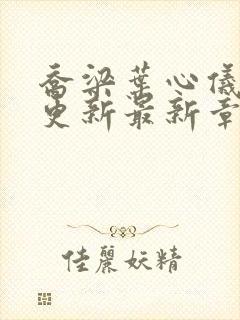 乔梁葉心儀
更新最新章
佳麗妖精